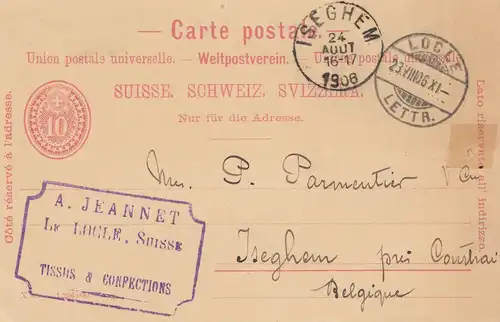 — Carte postale. —
Union postale universelle. — Weltpostverein. — Unione postale universale.
SUISSE. SCHWEIZ. SVIZZERA.
Nur für die Adresse.
Côté réservé à l'adresse.
Lato riservato all' indirizzo.
10
ISEGHEM
24
AOUT
16-17
1906
LOCLE
23.VIII.06.XI-
LETTR.
A. JEANNET
LE LOCLE, SUISSE
TISSUS & CONFECTIONS
P. Parmentier
Iseghem près Courtrai
Belgique